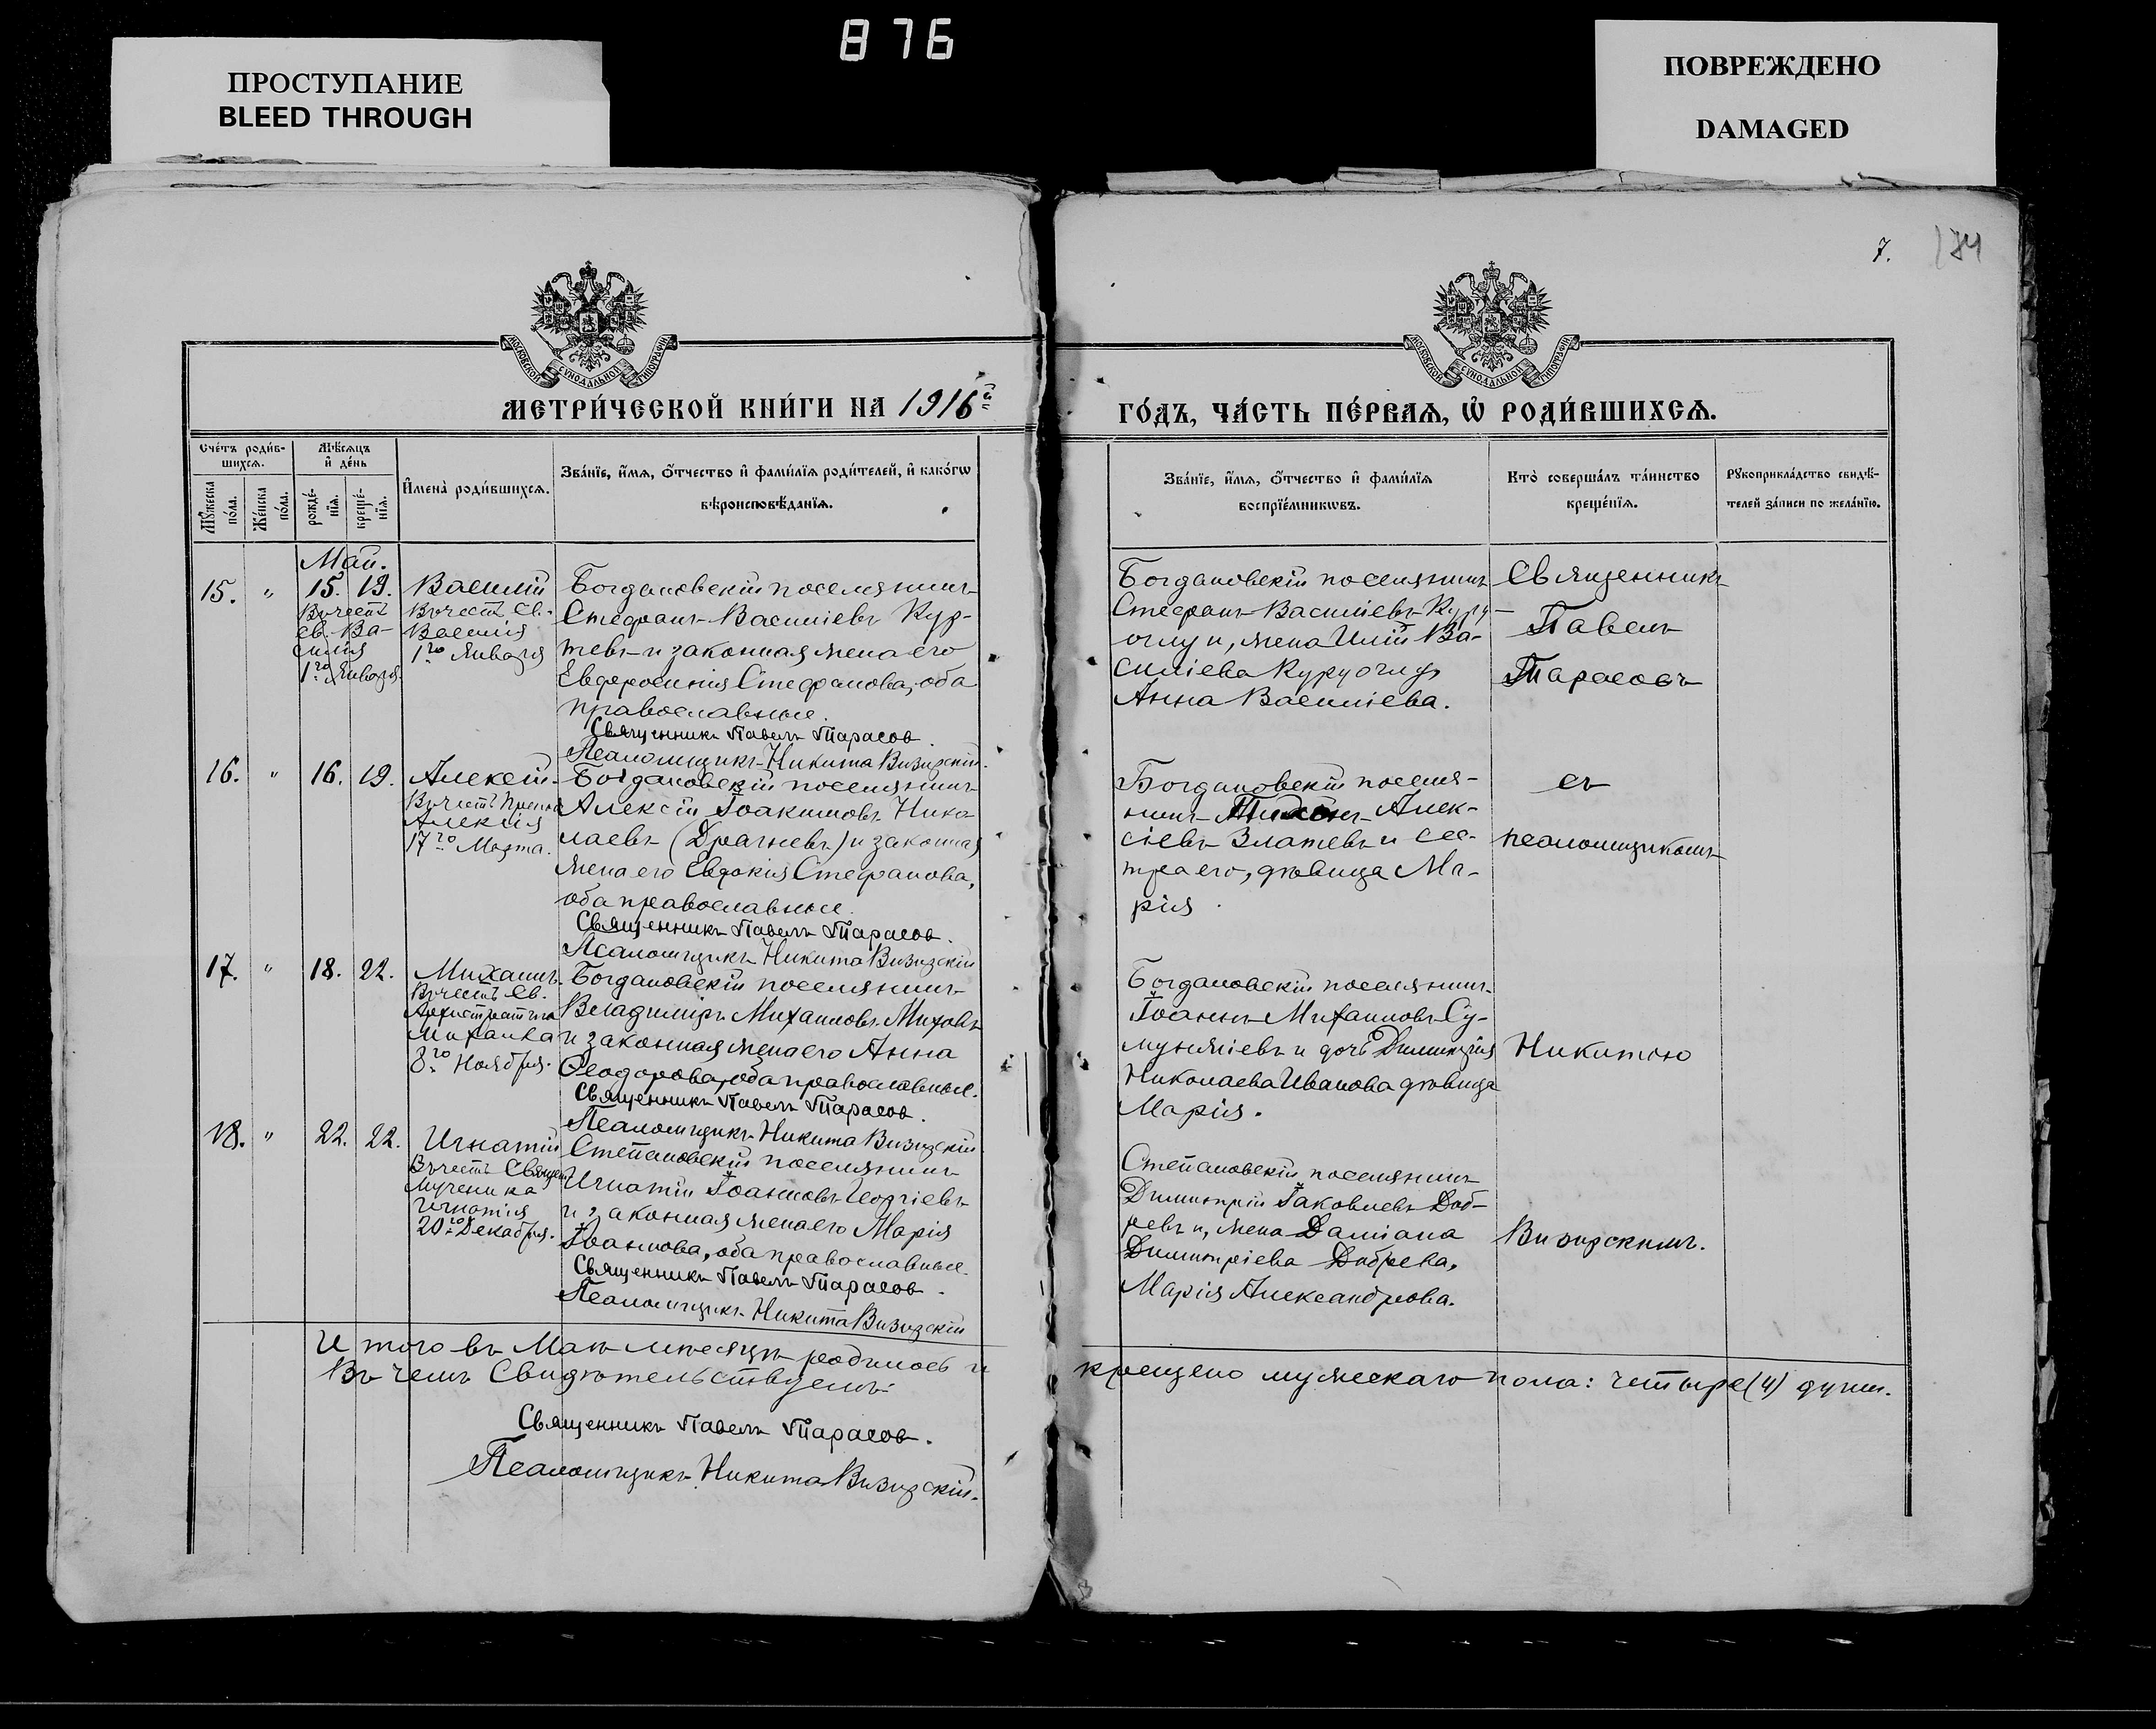 876
ПРОСТУПАНИЕ
BLEED THROUGH
ПОВРЕЖДЕНО
DAMAGED
7.
МОСКОВСКОЙ СѴНОДАЛЬНОЙ ТИПОГРАФІИ
МОСКОВСКОЙ СѴНОДАЛЬНОЙ ТИПОГРАФІИ
МЕТРИ́ЧЕСКОЙ КНИ́ГИ НА 1916й
ГО́ДЪ, ЧА́СТЬ ПЕ́РВАЯ, Ѡ҆ РОДИ́ВШИХСЯ.
Сче́тъ роди́в-
шихся.
Мужеска
по́ла.
Же́нска
по́ла.
Мѣ́сяцъ
и҆ де́нь
рожде́-
нїя.
креще́-
нїя.
И҆мена̀ роди́вшихся.
Зва́нїе, и҆́мя, ѻ҆́тчество и҆ фами́лїя роди́телей, и҆ како́гѡ
вѣроисповѣ́данїя.
Зва́нїе, и҆́мя, ѻ҆́тчество и҆ фами́лїя
воспрїе́мникѡвъ.
Кто̀ соверша́лъ та́инство
креще́нїя.
Рꙋкоприкла́дство свидѣ́-
телей за́писи по жела́нїю.
Май.
15. " 15. 19.
Въ честь
св. Ва-
силія
1го Января
Василій
Въ честь Св.
Василія
1го Января
Богдановскій поселянинъ
Стефанъ Василіевъ Кур-
тевъ и законная жена его
Евфросинія Стефанова, оба
православные.
Священникъ Павелъ Тарасов.
Псаломщикъ Никита Визирскій.
Богдановскій поселянинъ
Стефанъ Василіевъ Куру-
оглу и, жена Илій Ва-
силіева Куруоглу
Анна Василіева.
Священникъ
Павелъ
Тарасовъ
16. " 16. 19.
Алексій
Въ честь Препод
Алексія
17го Марта.
Богдановскій поселянинъ
Алексій Іоакимовъ Нико
лаевъ (Драгневъ) и законная
жена его Евдокія Стефанова,
оба православные.
Священникъ Павелъ Тарасов.
Псаломщикъ Никита Визирскій
Богдановскій поселя-
нинъ Алек-
сіевъ Златевъ и сес-
тра его, дѣвица Ма-
рія.
съ
псаломщикомъ
17. " 18. 22.
Михаилъ.
Въ честь Св.
Архистратига
Михаила
8го Ноября.
Богдановскій поселянинъ
Владиміръ Михаиловъ Миховъ
и законная жена его Анна
Ѳеодорова, оба православные.
Священникъ Павелъ Тарасов.
Псаломщикъ Никита Визирскій
Богдановскій поселянинъ
Іоаннъ Михаиловъ Су-
муняіевъ и дочь Димитрія
Николаева Иванова дѣвица
Марія.
Никитою
18. " 22. 22.
Игнатій
Въ честь Священ
Мученика
Игнатія
20го Декабря.
Степановскій поселянинъ
Игнатій Іоанновъ Георгіевъ
и законная жена его Марія
Іоаннова, оба православные.
Священникъ Павелъ Тарасов.
Псаломщикъ Никита Визирскій
Степановскій поселянинъ
Димитрій Іаковлевъ Доб-
ревъ и, жена Даміана
Димитріева Добрева,
Марія Александрова.
Визирскимъ.
Итого въ Маѣ мѣсяцѣ родилось и крещено мужескаго пола: четыре (4) души.
Въ чемъ Свидѣтельствуемъ:
Священникъ Павелъ Тарасов.
Псаломщикъ Никита Визирскій.